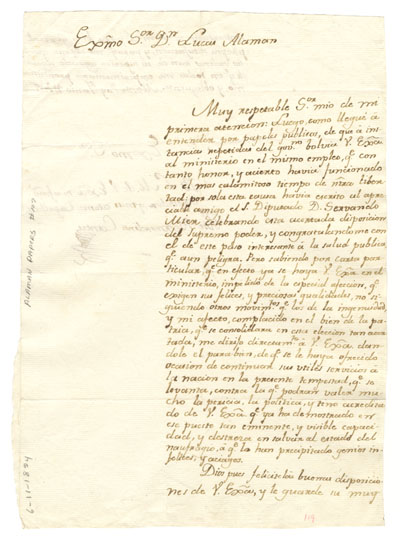 Exmo Sor Dn Lucas Alaman
Muy respetable Sor mio de mi
primera atencion: Luego, como llegué á
entender por papeles públicos, de qe á ins
tancias repetidas del govno bolvia V. Exâ
al ministerio en el mismo empleo, qe con
tanto honor, y acierto havia funcionado
en el mas calamitoso tiempo de ntra liber
tad: por sola esta causa havia escrito al apre
ciable amigo el S. Diputado D. Servando
Mier, celebrando esta acertada disposicion
del Supremo poder, y congratulandome con
el de este paso interesante á la salud publica,
qe aun peligra. Pero sabiendo por carta par
ticular, qe en efecto ya se haya V. Exâ en el
ministerio, impelido de la especial afeccion, qe
exigen sus felices, y preciosas qualidades, no si
guiendo otros movimtos qe los de la ingenuidad,
y mi afecto, complacido en el bien de la pa
tria, qe se consolidara en esa eleccion tan acer
tada, me dirijo directamte á V. Exâ dan
dole el paraban, de qe se le haya ofrecido
ocacion de continuar sus utiles servicios á
la nacion en la presente tempestad, qe se
levanta, contra la qe podrán valer mu
cho la pericia, la politica, y tino acredita
do de V. Exâ qe ya ha demostrado en
ese puesto tan eminente, y visible capaci
dad, y destreza en salvar al estado del
naufragio, á qe lo han precipitado genios in
felices, y aciagos.
Dios pues felicite las buenas disposicio
nes de V. Exâ, y le guarde su muy
ALAMAN PAPERS #
6-11-1824
119